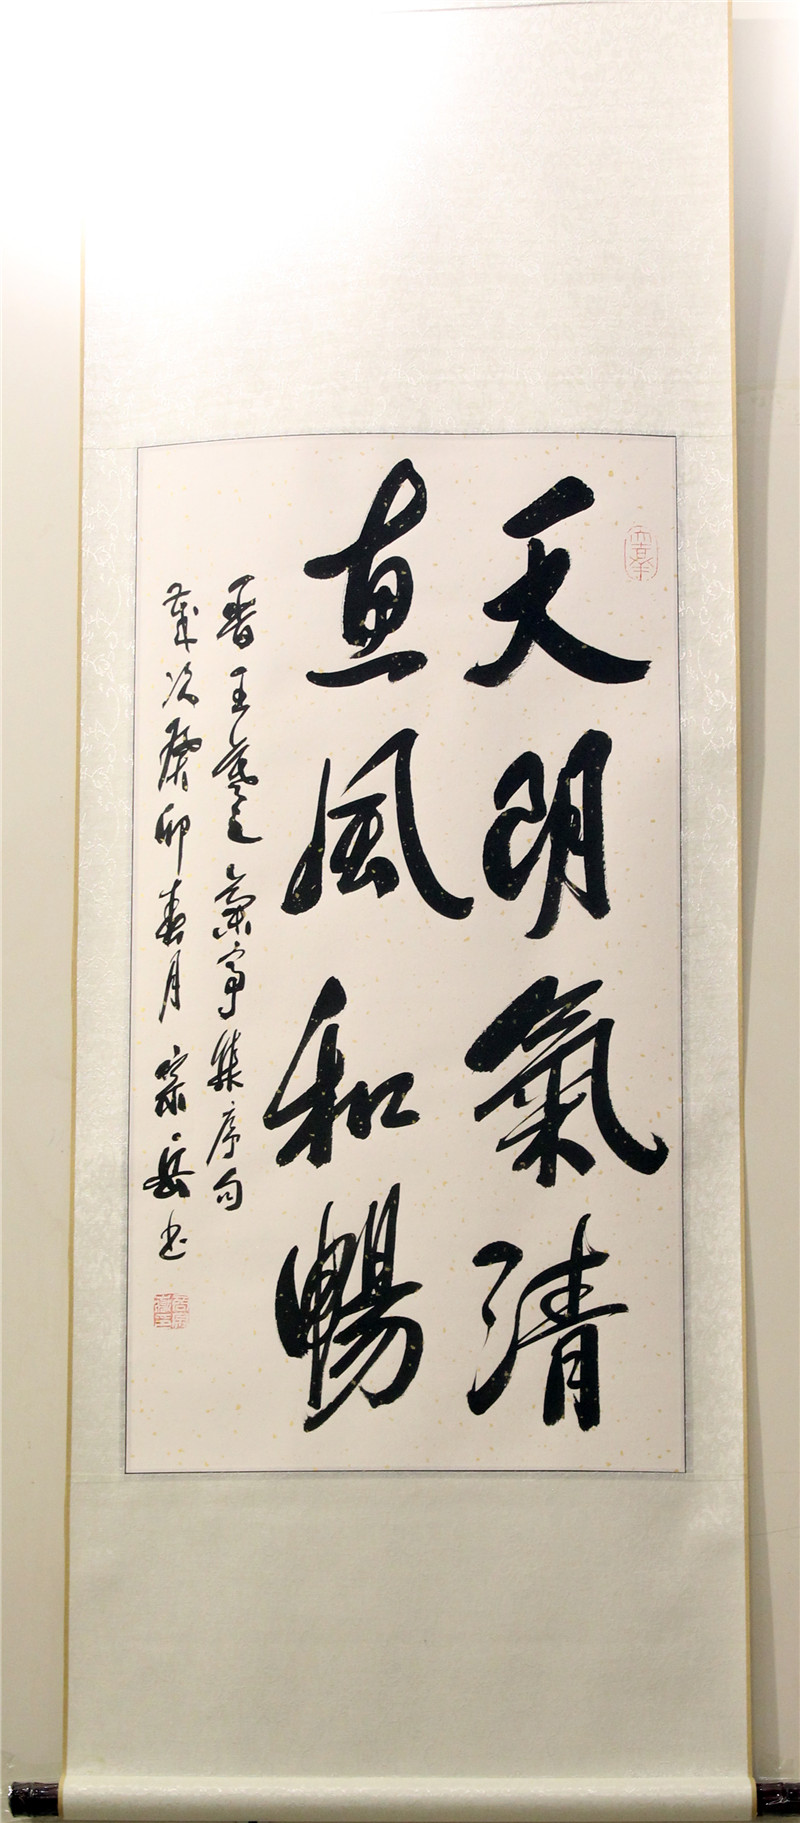 天明氣清
惠風和暢
晉王羲之蘭亭集序句
歲次癸卯春月宗岳书